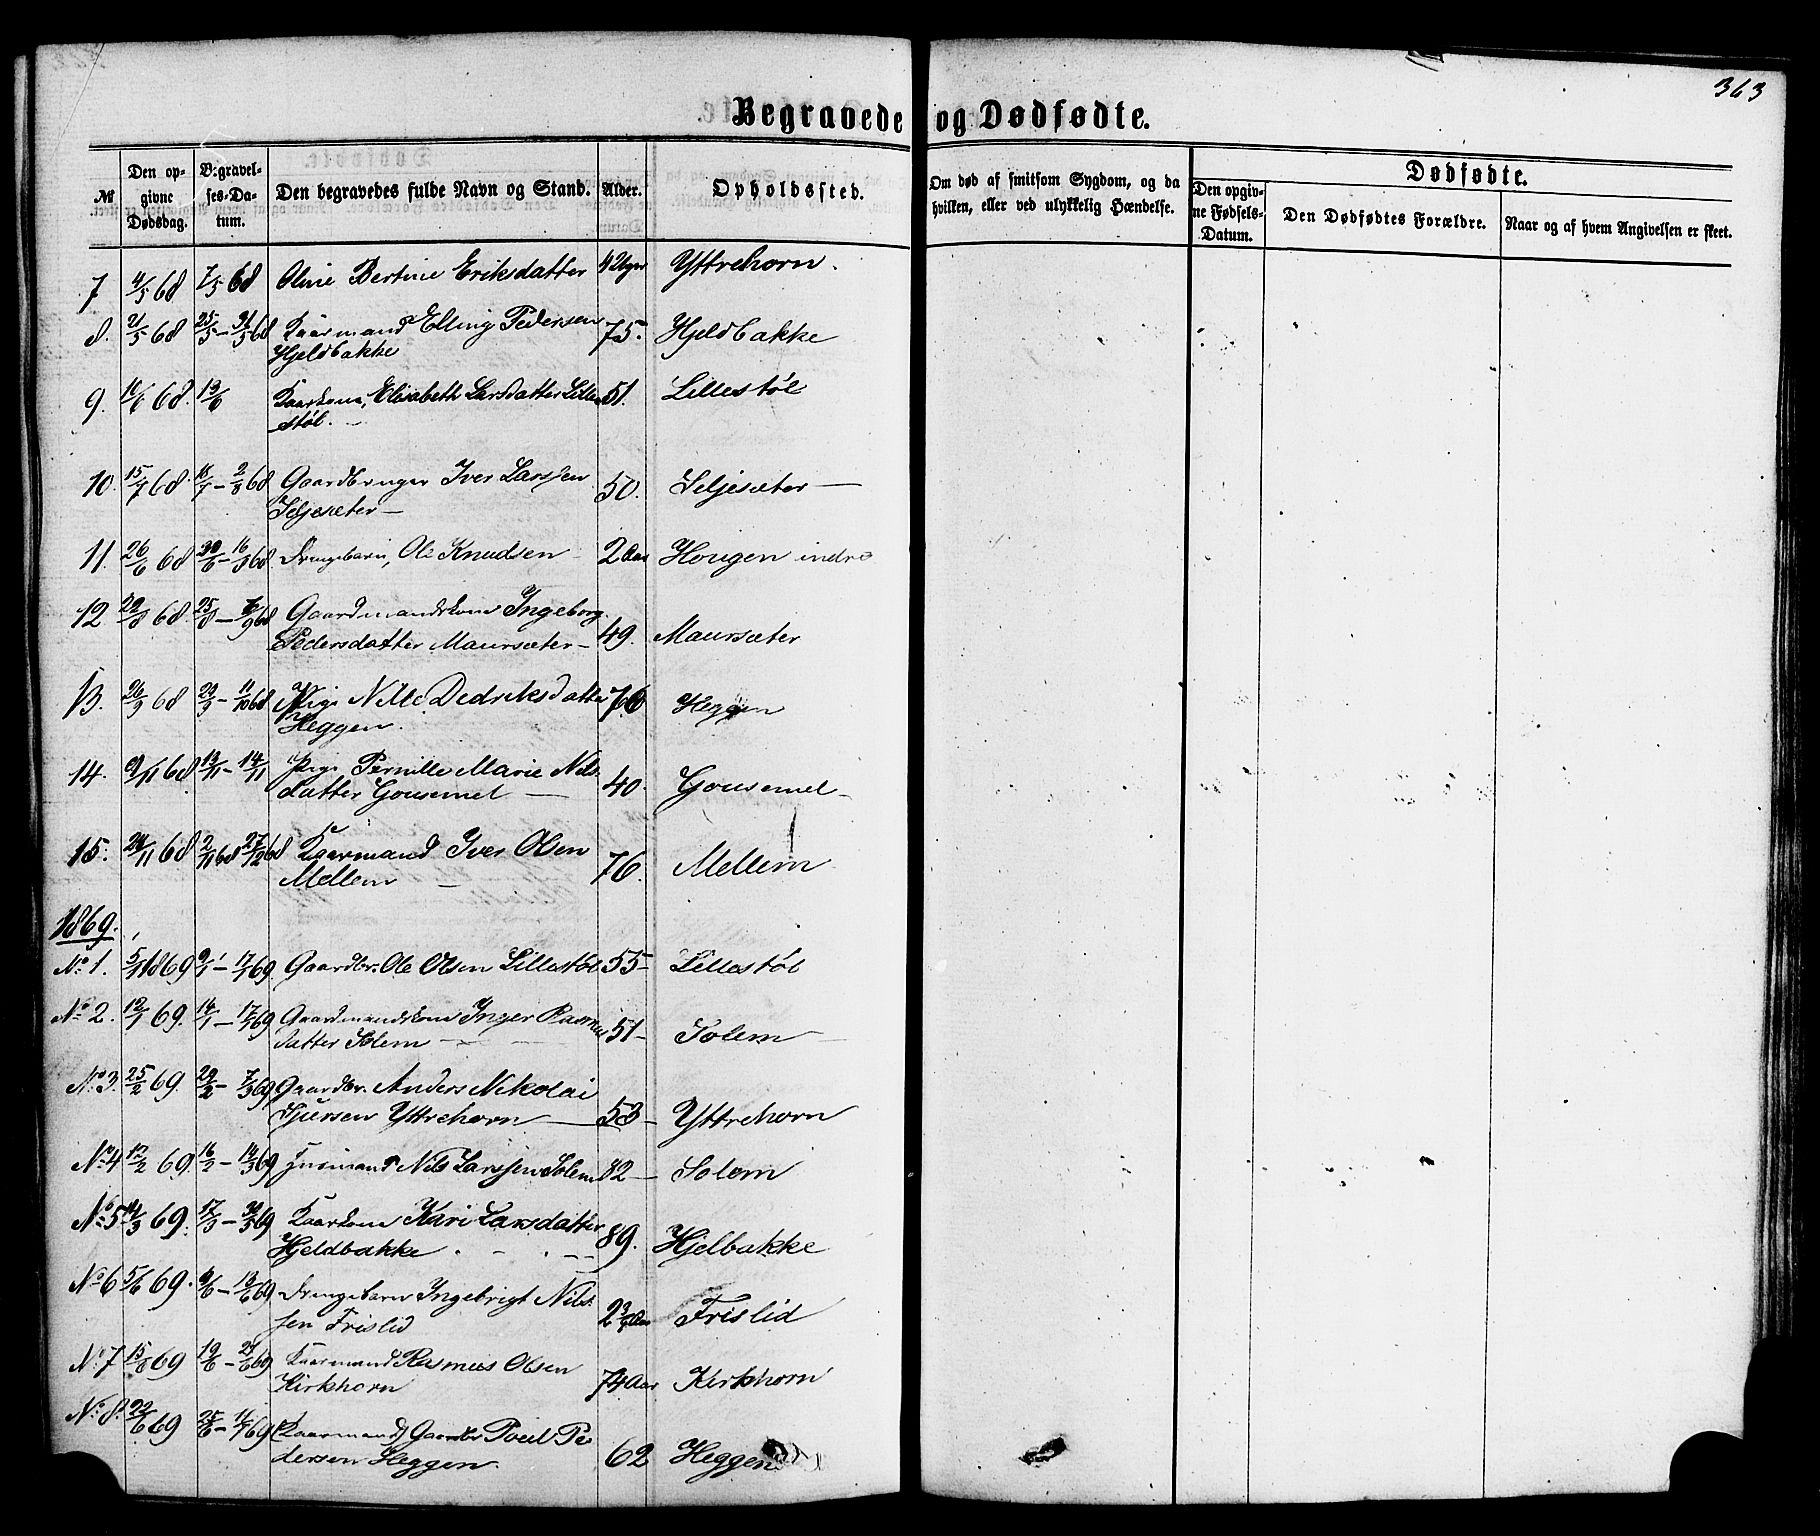 363
Begravede og Dødfødte.
№
Den opgivne Dødsdag.
Begravelses-Datum.
Den begravedes fulde Navn og Stand.
Alder.
Opholdssted.
Om død af smitsom Sygdom, og da hvilken, eller ved ulykkelig Hændelse.
Dødfødte.
Den opgivne Fødsels-Datum.
Den Dødfødtes Forældre.
Naar og af hvem Angivelsen er skeet.
7 4/5 68 7/5 68 Oline Bertine Eriksdatter Yttrehorn.
8. 21/5 68 25/5 - 31/5 68 Kaarmand Elling Pedersen 75. Hjeldbakke
Hjeldbakke
9. 10/6 68. 13/6 Kaarkone, Elisabeth Larsdatter Lille 51. Lillestøl
støl. -
10. 15/7 68. 18/7 - 2/8 68 Gaardbruger Iver Larssen 50. Seljesæter -
Seljesæter -
11. 26/6 68 30/6 - 16/8 68 Drengebarn, Ole Knudsen - 2 Aar Hougen indre
12 22/8 68. 25/8 - 6/9 68 Gaardmandskone Ingeborg
Pedersdatter Maursæter - 49. Maursæter
13. 26/9 68 29/9 - 11/10 68 Pige Nille Dedriksdatter 76 Heggen
Heggen.
14. 9/11 68 13/11 - 14/11 Pige Pernille Marie Nils
datter Gousemel - 40. Gousemel -
15. 24/11 68 2/11 68 27/12 68 Kaarmand Iver Olsen
Mellem - 76. Mellem
1869.
No 1. 5/1 1869 9/1 - 17/1 69. Gaardbr. Ole Olsen Lillestøl 55 - Lillestøl
No 2. 12/1 69. 14/1 - 17/1 69 Gaardmandskone Inger Rasmus
datter Solem - 51 - Solem -
No 3. 25/2 69. 29/2 - 7/3 69 Gaardbr. Anders Nikolai
Sjursen Yttrehorn - 53 - Yttrehorn
No 4 12/2 69. 16/2 - 14/3 69 Huusmand Nils Larssen Solem 82 - Solem
No 5 14/3 69. 17/3 - 30/5 69 Kaarkone Kari Larsdatter
Hjeldbakke 89. Hjelbakke
No 6 5/6 69. 9/6 - 13/6 69 Drengebarn Ingebrigt Nils-
sen Frislid Frislid
No 7 15/6 69 19/6 - 24/6 69 Kaarmand Rasmus Olsen
Kirkhorn 74 Aar Kirkhorn
No 8. 22/6 69 25/6 - 11/7 69 (Kaarmand) Gaardbr Poul Pe
dersen Heggen. 62 Heggen